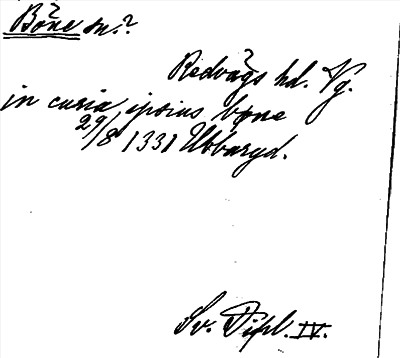 Bōne sn.?
Redvägs hd. Vg.
in curia ipsius bone
29/8 1331 Ubbaryd.
Sv. Dipl. IV.